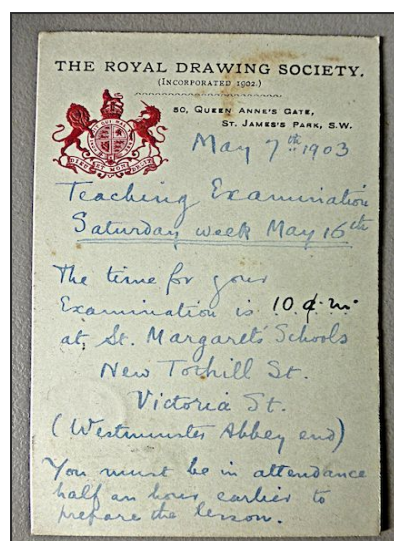 THE ROYAL DRAWING SOCIETY.
(INCORPORATED 1902.)
50, QUEEN ANNE'S GATE,
ST. JAMES'S PARK, S.W.
DIEU ET MON DROIT
May 7th 1903
Teaching Examination
Saturday week May 16th
The time for your
Examination is 10 a.m.
at St. Margaret's Schools
New Tothill St.
Victoria St.
(Westminster Abbey end)
You must be in attendance
half an hour earlier to
prepare the lesson.